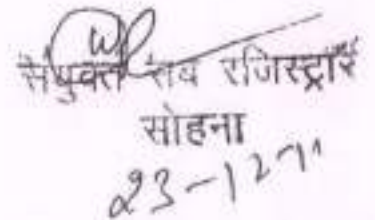 संयुक्त सब रजिस्ट्रार
सोहना
23-12-11